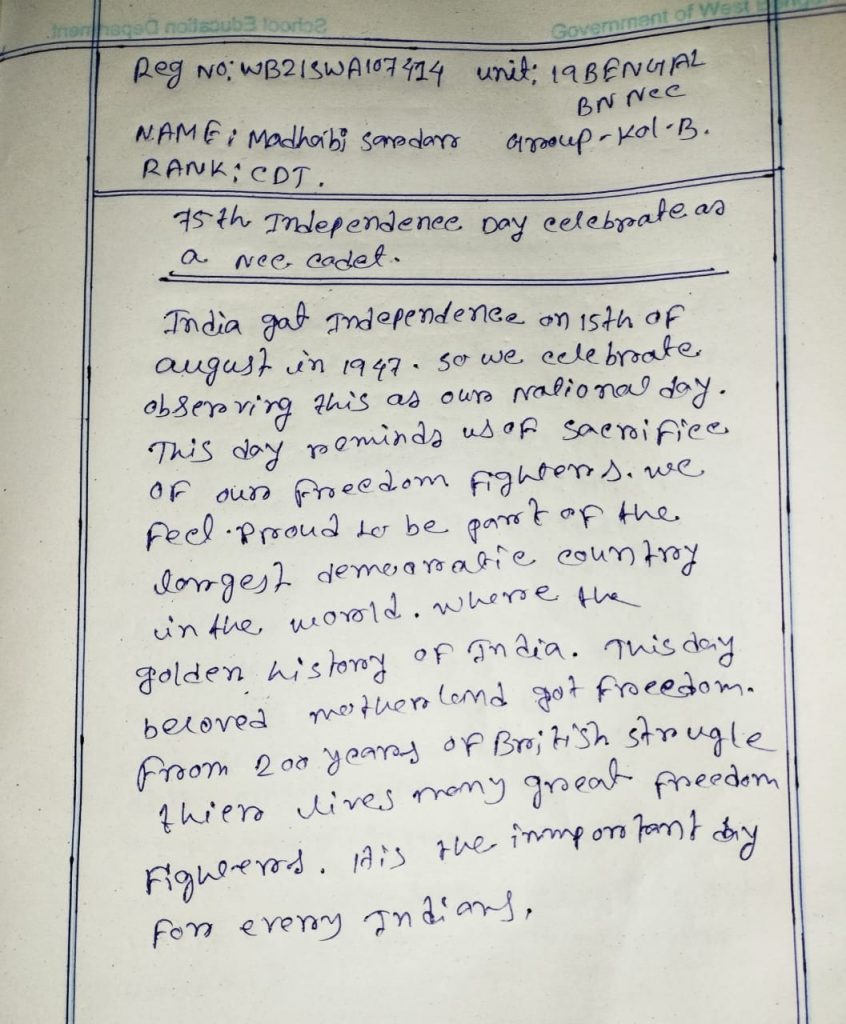 Government of West Bengal
School Education Department
Reg No: WB21SWA107414 unit: 19 BENGAL
BN NCC
NAME: Madhabi Sardar Group-Kol-B.
RANK: CDT.
75th Independence Day celebrate as
a NCC cadet.
India gat Independence on 15th of
august in 1947. so we celebrate
observing this as our National day.
This day reminds us of sacrifice
of our freedom fighters. we
feel proud to be part of the
largest democratic country
in the world. where the
golden history of India. This day
beloved motherland got freedom.
from 200 years of British strugle
thier lives many great freedom
figheers. It is the immportant day
for every Indians.